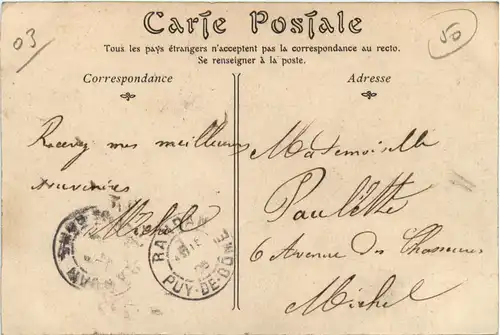 03
50
Carte Postale
Tous les pays étrangers n'acceptent pas la correspondance au recto.
Se renseigner à la poste.
Correspondance
Adresse
Recevez mes meilleurs
souvenirs
Michel
Mademoiselle
Paulette
6 Avenue des Chasseurs
Michel
PUY-DE-DÔME